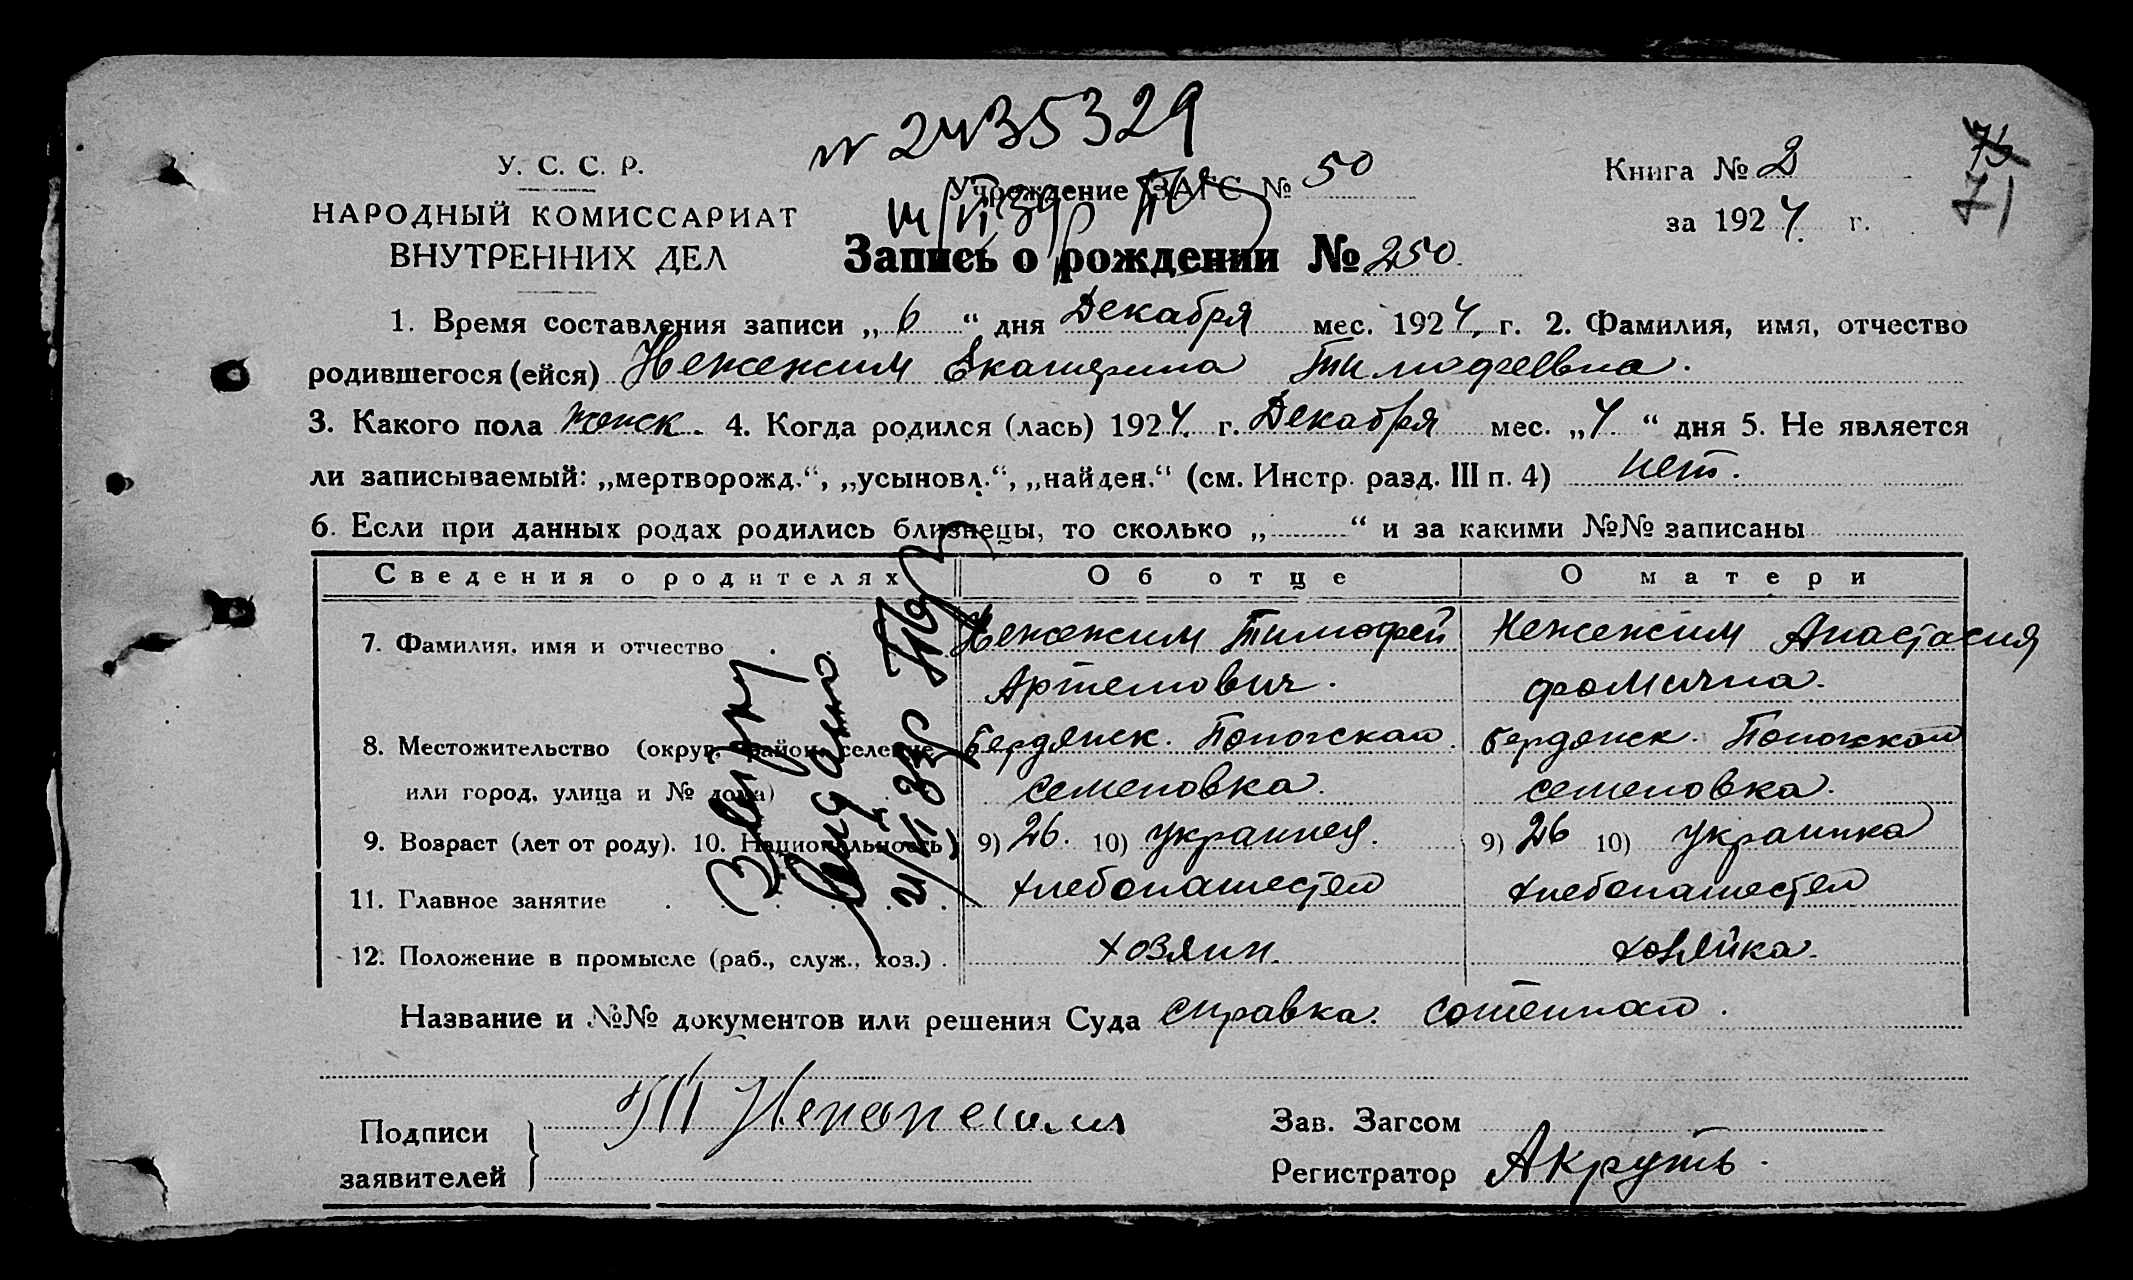 № 2435329
У. С. С. Р.
НАРОДНЫЙ КОМИССАРИАТ
ВНУТРЕННИХ ДЕЛ
Учреждение ЗАГС № 50
Книга № 2
за 1924 г.
71
Запись о рождении № 250.
1. Время составления записи „ 6 “ дня Декабря мес. 1924. г. 2. Фамилия, имя, отчество
родившегося (ейся) Нежежим Екатерина Тимофеевна.
3. Какого пола женск. 4. Когда родился (лась) 1924. г. Декабря мес. „ 4. “ дня 5. Не является
ли записываемый: „мертворожд.“, „усыновл.“, „найден.“ (см. Инстр. разд. III п. 4) нет.
6. Если при данных родах родились близнецы, то сколько „ “ и за какими №№ записаны
Сведения о родителях Об отце О матери
7. Фамилия, имя и отчество Нежежим Тимофей Нежежим Анастасия
Артемович. фомична.
8. Местожительство (округ, район, селение Бердянск. Бердянск
или город, улица и № дома) семеновка. семеновка.
9. Возраст (лет от роду). 10. Национальность) 9) 26. 10) украинец. 9) 26 10) украинка
11. Главное занятие хлебопашество хлебопашество
12. Положение в промысле (раб., служ., хоз.) хозяин. хозяйка.
Название и №№ документов или решения Суда справка.
Подписи
заявителей
Зав. Загсом
Регистратор АКруть.